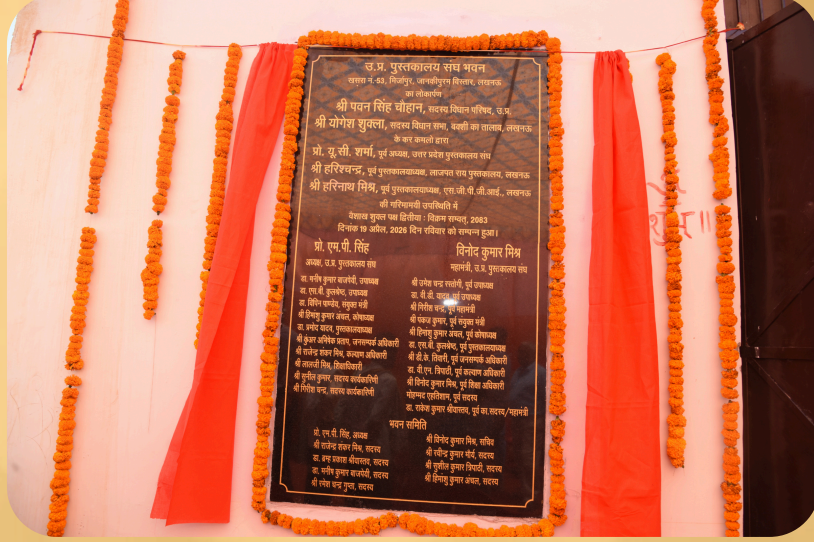 उ.प्र. पुस्तकालय संघ भवन
खसरा नं.-53, मिर्जापुर, जानकीपुरम विस्तार, लखनऊ
का लोकार्पण
श्री पवन सिंह चौहान, सदस्य विधान परिषद, उ.प्र.
श्री योगेश शुक्ला, सदस्य विधान सभा, बक्शी का तालाब, लखनऊ
के कर कमलों द्वारा
प्रो. यू.सी. शर्मा, पूर्व अध्यक्ष, उत्तर प्रदेश पुस्तकालय संघ
श्री हरिश्चन्द्र, पूर्व पुस्तकालयाध्यक्ष, लाजपत राय पुस्तकालय, लखनऊ
श्री हरिनाथ मिश्र, पूर्व पुस्तकालयाध्यक्ष, एस.जी.पी.जी.आई., लखनऊ
की गरिमामयी उपस्थिति में
वैशाख शुक्ल पक्ष द्वितीया : विक्रम सम्वत्, 2083
दिनांक 19 अप्रैल, 2026 दिन रविवार को सम्पन्न हुआ।
प्रो. एम.पी. सिंह
अध्यक्ष, उ.प्र. पुस्तकालय संघ
डा. मनीष कुमार बाजपेयी, उपाध्यक्ष
डा. एस.बी. कुलश्रेष्ठ, उपाध्यक्ष
डा. विपिन पाण्डेय, संयुक्त मंत्री
श्री हिमांशु कुमार अंचल, कोषाध्यक्ष
डा. प्रमोद यादव, पुस्तकालयाध्यक्ष
श्री कुंअर अभिषेक प्रताप, जनसम्पर्क अधिकारी
श्री राजेन्द्र शंकर मिश्र, कल्याण अधिकारी
श्री लालजी मिश्र, शिक्षाधिकारी
श्री सुनील कुमार, सदस्य कार्यकारिणी
श्री गिरीश चन्द्र, सदस्य कार्यकारिणी
विनोद कुमार मिश्र
महामंत्री, उ.प्र. पुस्तकालय संघ
श्री उमेश चन्द्र रस्तोगी, पूर्व उपाध्यक्ष
डा. वी.डी. यादव, पूर्व उपाध्यक्ष
श्री गिरीश चन्द्र, पूर्व महामंत्री
श्री पंकज कुमार, पूर्व संयुक्त मंत्री
श्री हिमांशु कुमार अंचल, पूर्व कोषाध्यक्ष
डा. एस.बी. कुलश्रेष्ठ, पूर्व पुस्तकालयाध्यक्ष
श्री डी.के. तिवारी, पूर्व जनसम्पर्क अधिकारी
डा. वी.एन. त्रिपाठी, पूर्व कल्याण अधिकारी
श्री विनोद कुमार मिश्र, पूर्व शिक्षा अधिकारी
मोहम्मद एहतिशाम, पूर्व सदस्य
डा. राकेश कुमार श्रीवास्तव, पूर्व का.सदस्य/महामंत्री
भवन समिति
प्रो. एम.पी. सिंह, अध्यक्ष
श्री राजेन्द्र शंकर मिश्र, सदस्य
डा. ब्रम्ह प्रकाश श्रीवास्तव, सदस्य
डा. मनीष कुमार बाजपेयी, सदस्य
श्री रमेश चन्द्र गुप्ता, सदस्य
श्री विनोद कुमार मिश्र, सचिव
श्री रवीन्द्र कुमार मौर्य, सदस्य
श्री सुशील कुमार त्रिपाठी, सदस्य
श्री हिमांशु कुमार अंचल, सदस्य